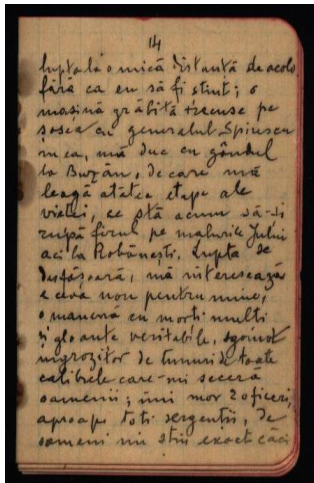 14
lupta la o mică distanță de acolo
fără ca eu să fi știut; o
mașină grăbită trecuse pe
șosea cu generalul
mea, mă duc cu gândul
la Buzău, de care mă
leagă atâtea etape ale
vieței, ce stă acum să-și
rupă firul pe malurile Jiului
aci la Robănești. Lupta se
desfășoară, mă interesează
e ceva nou pentru mine,
o manevră cu morți mulți
și gloanțe veritabile, sgomot
îngrozitor de tunuri de toate
calibrele care-mi seceră
oamenii; îmi mor 2 oficeri,
aproape toți sergenții, de
oameni nu știu exact căci